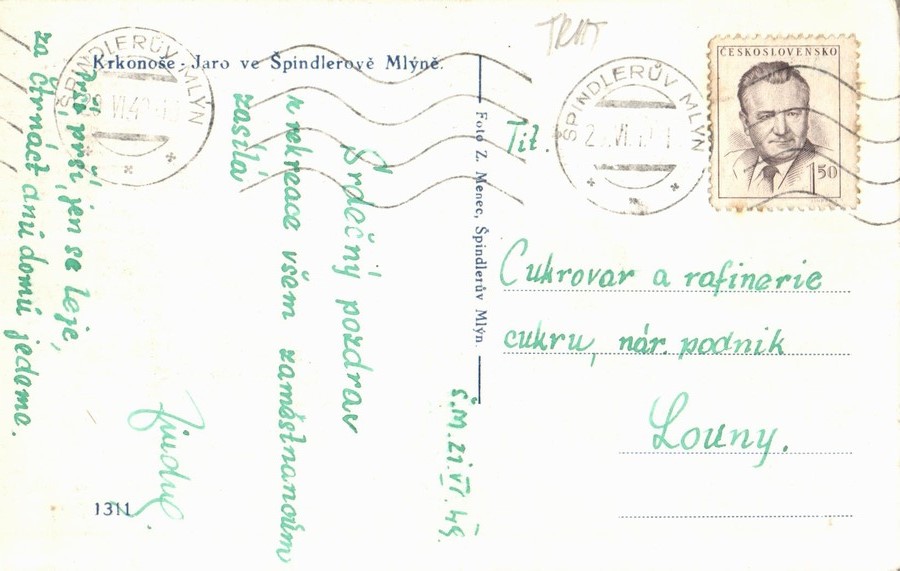 Krkonoše - Jaro ve Špindlerově Mlýně.
Foto Z. Menec, Špindlerův Mlýn.
1311
Š.M. 21.VI.49.
Srdečný pozdrav
z rekreace všem zaměstnancům
zasílá
Prší, prší, jen se leje,
za čtrnáct dnů domů jedeme.
ŠPINDLERŮV MLÝN
ŠPINDLERŮV MLÝN
ČESKOSLOVENSKO
1 50
Tit.
Cukrovar a rafinerie
cukru, nár. podnik
Louny.